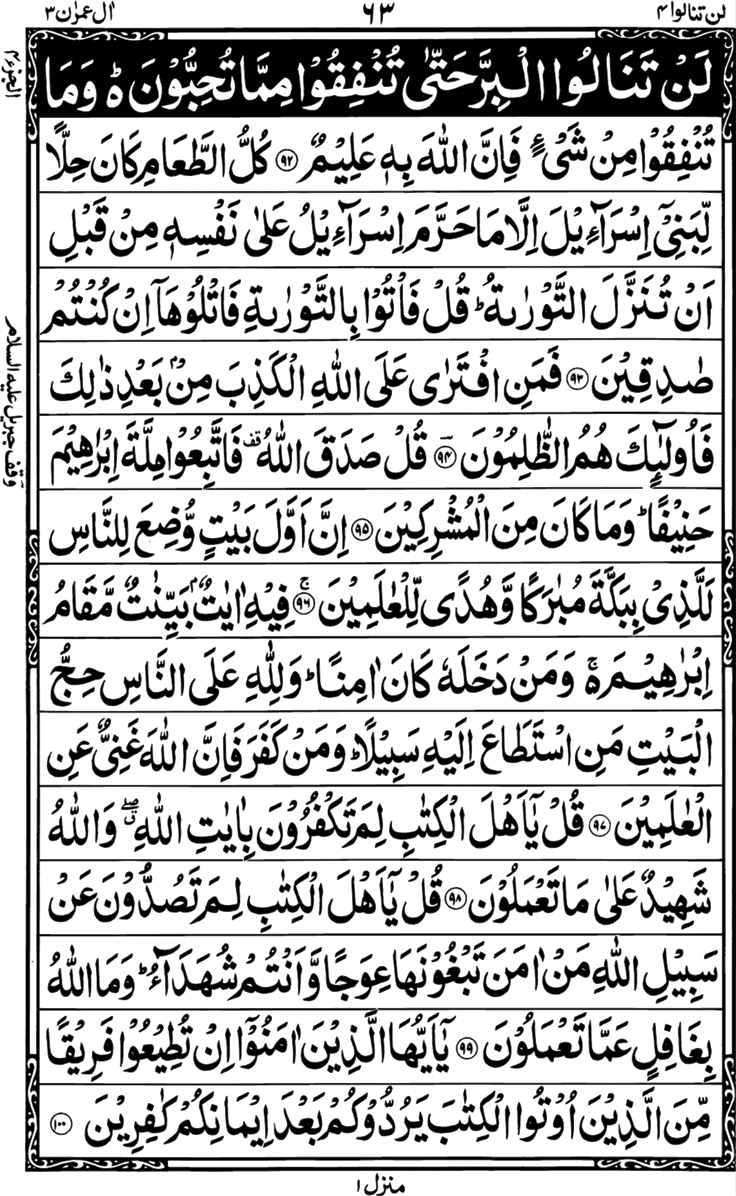 لن تنالوا ۴
۶۳
اٰل عمرٰن ۳
الجزء ۴
لَنْ تَنَالُوا الْبِرَّ حَتّٰى تُنْفِقُوْا مِمَّا تُحِبُّوْنَ ؕ۬ وَمَا
تُنْفِقُوْا مِنْ شَىْءٍ فَاِنَّ اللّٰهَ بِهٖ عَلِيْمٌ ﴿۹۲﴾ كُلُّ الطَّعَامِ كَانَ حِلًّا
لِّبَنِىْۤ اِسْرَآءِيْلَ اِلَّا مَا حَرَّمَ اِسْرَآءِيْلُ عَلٰى نَفْسِهٖ مِنْ قَبْلِ
اَنْ تُنَزَّلَ التَّوْرٰىةُ ؕ قُلْ فَاْتُوْا بِالتَّوْرٰىةِ فَاتْلُوْهَاۤ اِنْ كُنْتُمْ
صٰدِقِيْنَ ﴿۹۳﴾ فَمَنِ افْتَرٰى عَلَى اللّٰهِ الْكَذِبَ مِنْۢ بَعْدِ ذٰلِكَ
فَاُولٰٓئِكَ هُمُ الظّٰلِمُوْنَ ﴿۹۴﴾ قُلْ صَدَقَ اللّٰهُ قف فَاتَّبِعُوْا مِلَّةَ اِبْرٰهِيْمَ
حَنِيْفًا ؕ وَمَا كَانَ مِنَ الْمُشْرِكِيْنَ ﴿۹۵﴾ اِنَّ اَوَّلَ بَيْتٍ وُّضِعَ لِلنَّاسِ
لَلَّذِىْ بِبَكَّةَ مُبٰرَكًا وَّهُدًى لِّلْعٰلَمِيْنَ ۚ﴿۹۶﴾ فِيْهِ اٰيٰتٌۢ بَيِّنٰتٌ مَّقَامُ
اِبْرٰهِيْمَ ۬ۚ وَمَنْ دَخَلَهٗ كَانَ اٰمِنًا ؕ وَلِلّٰهِ عَلَى النَّاسِ حِجُّ
الْبَيْتِ مَنِ اسْتَطَاعَ اِلَيْهِ سَبِيْلًا ؕ وَمَنْ كَفَرَ فَاِنَّ اللّٰهَ غَنِىٌّ عَنِ
الْعٰلَمِيْنَ ﴿۹۷﴾ قُلْ يٰۤاَهْلَ الْكِتٰبِ لِمَ تَكْفُرُوْنَ بِاٰيٰتِ اللّٰهِ ۖ وَاللّٰهُ
شَهِيْدٌ عَلٰى مَا تَعْمَلُوْنَ ﴿۹۸﴾ قُلْ يٰۤاَهْلَ الْكِتٰبِ لِمَ تَصُدُّوْنَ عَنْ
سَبِيْلِ اللّٰهِ مَنْ اٰمَنَ تَبْغُوْنَهَا عِوَجًا وَّاَنْتُمْ شُهَدَآءُ ؕ وَمَا اللّٰهُ
بِغَافِلٍ عَمَّا تَعْمَلُوْنَ ﴿۹۹﴾ يٰۤاَيُّهَا الَّذِيْنَ اٰمَنُوْۤا اِنْ تُطِيْعُوْا فَرِيْقًا
مِّنَ الَّذِيْنَ اُوْتُوا الْكِتٰبَ يَرُدُّوْكُمْ بَعْدَ اِيْمَانِكُمْ كٰفِرِيْنَ ﴿۱۰۰﴾
وقف جبريل عليه السلام
منزل ۱